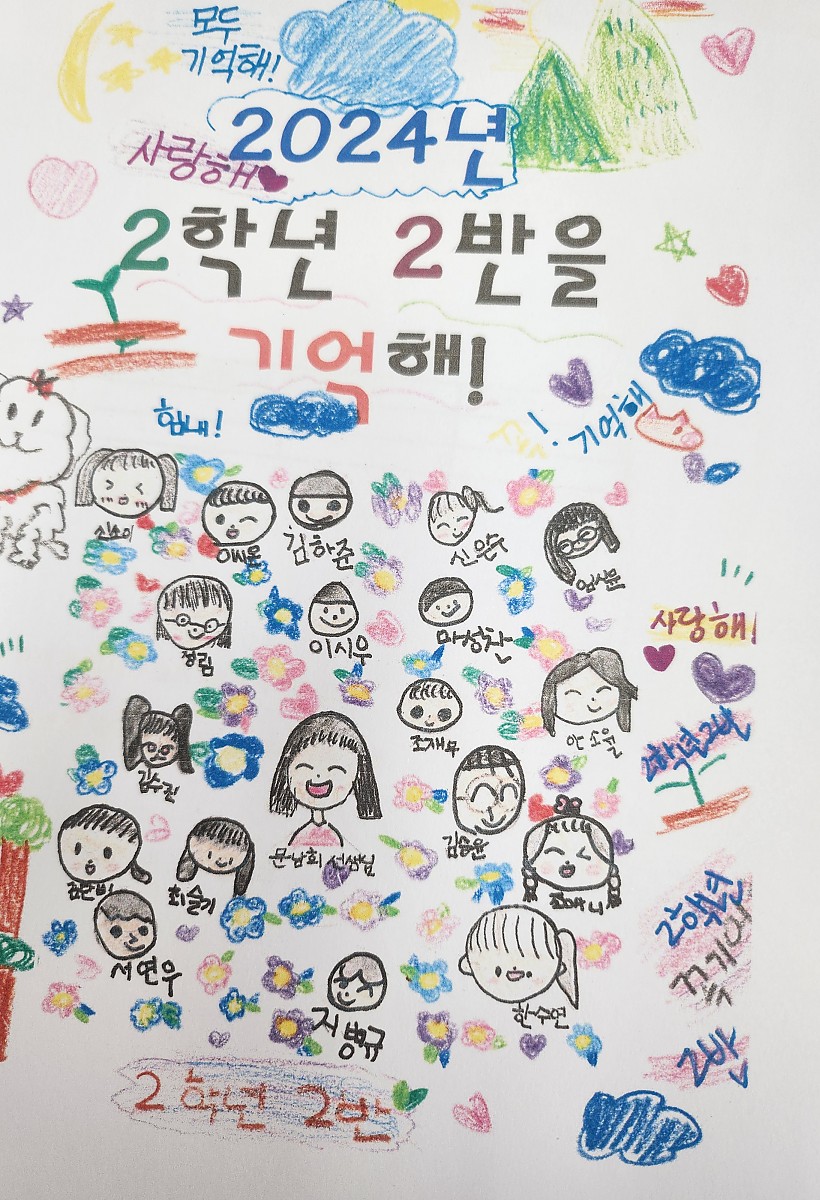 모두
기억해!
2024년
사랑해
2학년 2반을
기억해!
힘내!
기억해
신소이
김하준
신은수
엄시윤
정림
이시우
마성찬
사랑해!
조재우
안소율
2학년 2반
김수진
문남희 선생님
김승윤
최슬기
조예니
서연우
2학년
2반
한수연
지병규
2학년 2반